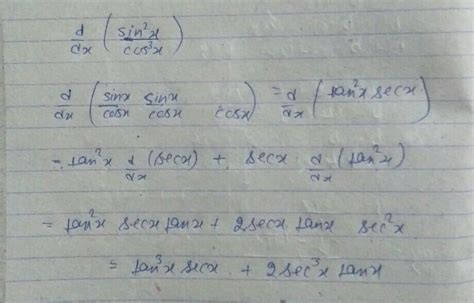 d/dx (sin²x/cos³x)
d/dx (sinx/cosx sinx/cosx cosx) = d/dx (tan²x secx)
= tan²x d/dx (secx) + secx . d/dx (tan²x)
= tan²x secx tanx + 2secx tanx sec²x
= tan³x secx + 2sec³x tanx